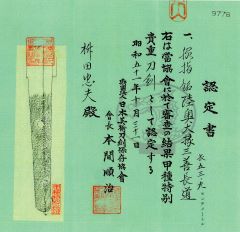 9778
認定書
一、脇指 銘 陸奥大掾三善長道
長 五三.九
右は當協會に於て審査の結果甲種特別
貴重刀剣として認定する
昭和五十一年十月三十一日
財團法人日本美術刀剣保存協會
會長 本間順治
桝田忠夫殿